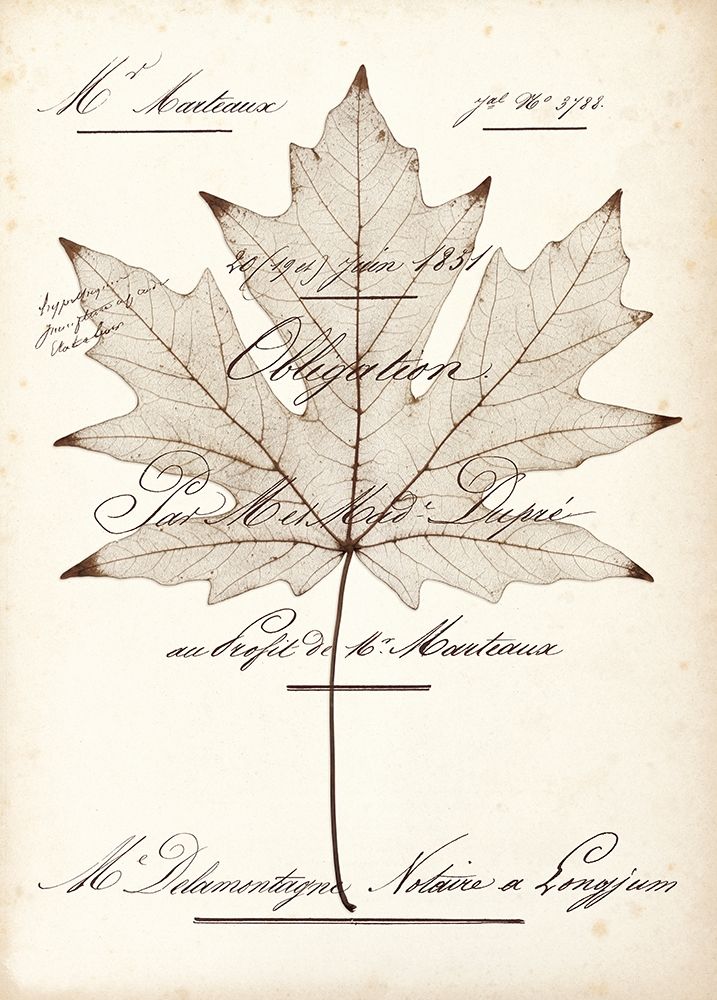 Mr Marteaux
gal No 3788.
20 (19 et) Juin 1851
Obligation.
Par M et Made Dupré
au Profit de Mr. Marteaux
Me Delamontagne Notaire a Longjum